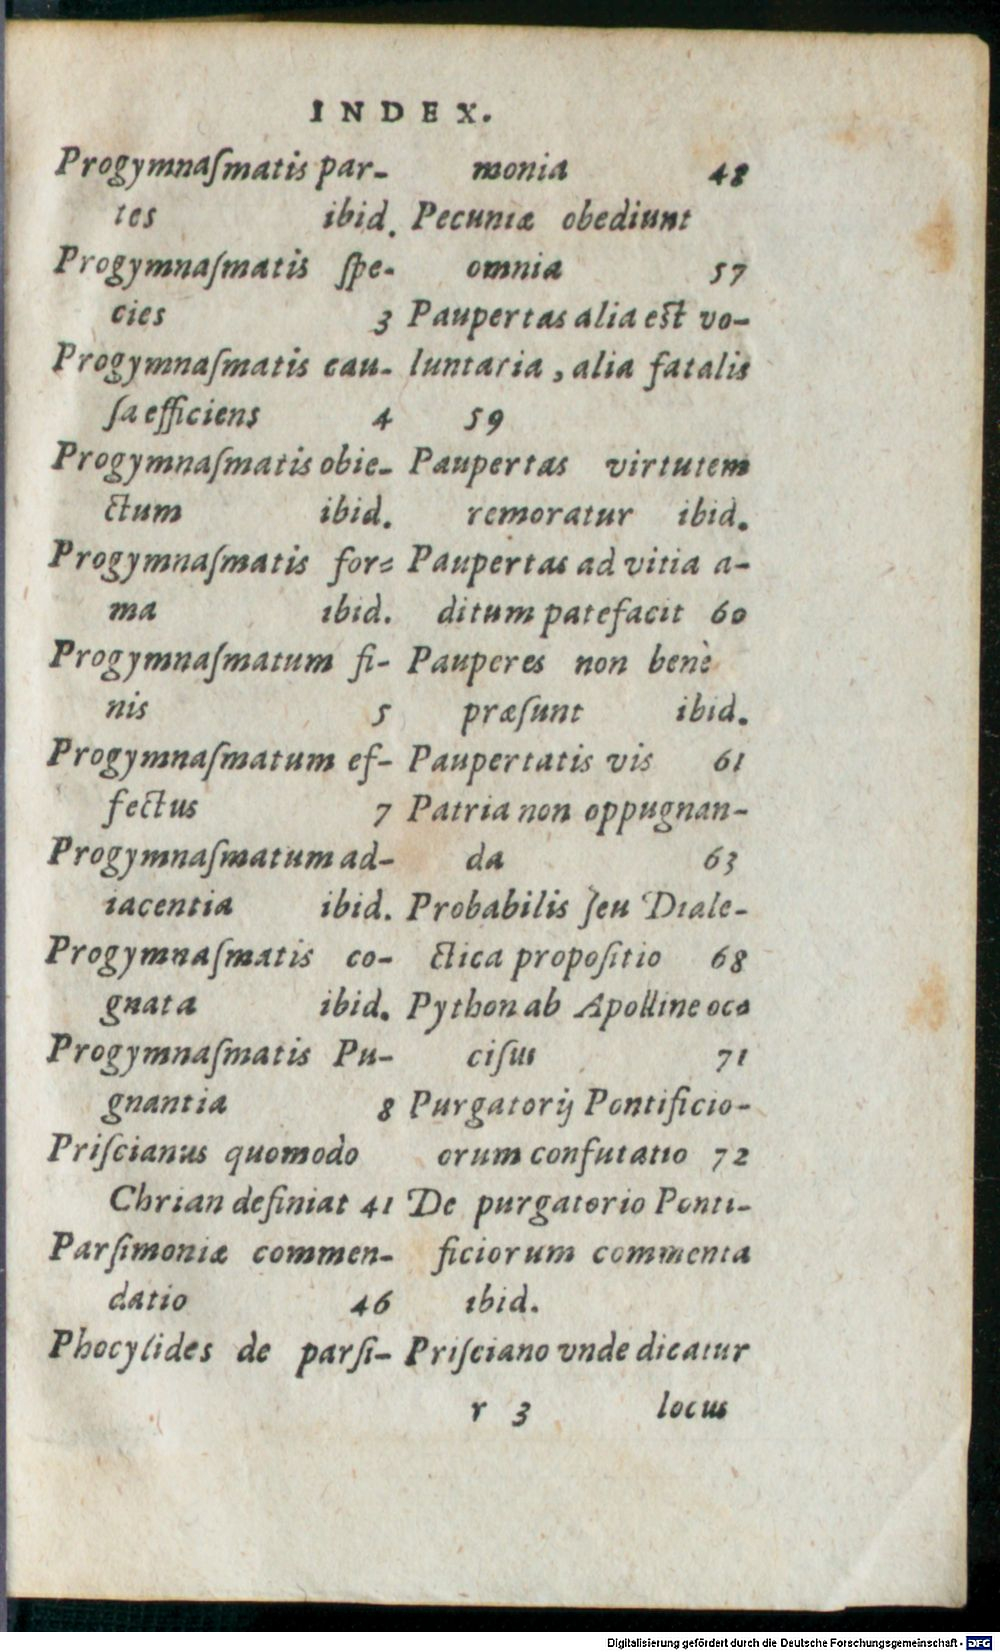 INDEX.
Progymnaſmatis par-
tes ibid.
Progymnaſmatis ſpe-
cies 3
Progymnaſmatis cau-
ſa efficiens 4
Progymnaſmatis obie-
ctum ibid.
Progymnaſmatis for=
ma ibid.
Progymnaſmatum fi-
nis 5
Progymnaſmatum ef-
fectus 7
Progymnaſmatum ad-
iacentia ibid.
Progymnaſmatis co-
gnata ibid.
Progymnaſmatis Pu-
gnantia 8
Priſcianus quomodo
Chrian definiat 41
Parſimoniæ commen-
datio 46
Phocylides de parſi-
monia 48
Pecuniæ obediunt
omnia 57
Paupertas alia est vo-
luntaria, alia fatalis
59
Paupertas virtutem
remoratur ibid.
Paupertas ad vitia a-
ditum patefacit 60
Pauperes non benè
præſunt ibid.
Paupertatis vis 61
Patria non oppugnan-
da 63
Probabilis ſeu Diale-
ctica propoſitio 68
Python ab Apolline occ
ciſus 71
Purgatorij Pontificio-
orum confutatio 72
De purgatorio Ponti-
ficiorum commenta
ibid.
Priſciano vnde dicatur
r 3 locus
Digitalisierung gefördert durch die Deutsche Forschungsgemeinschaft - DFG